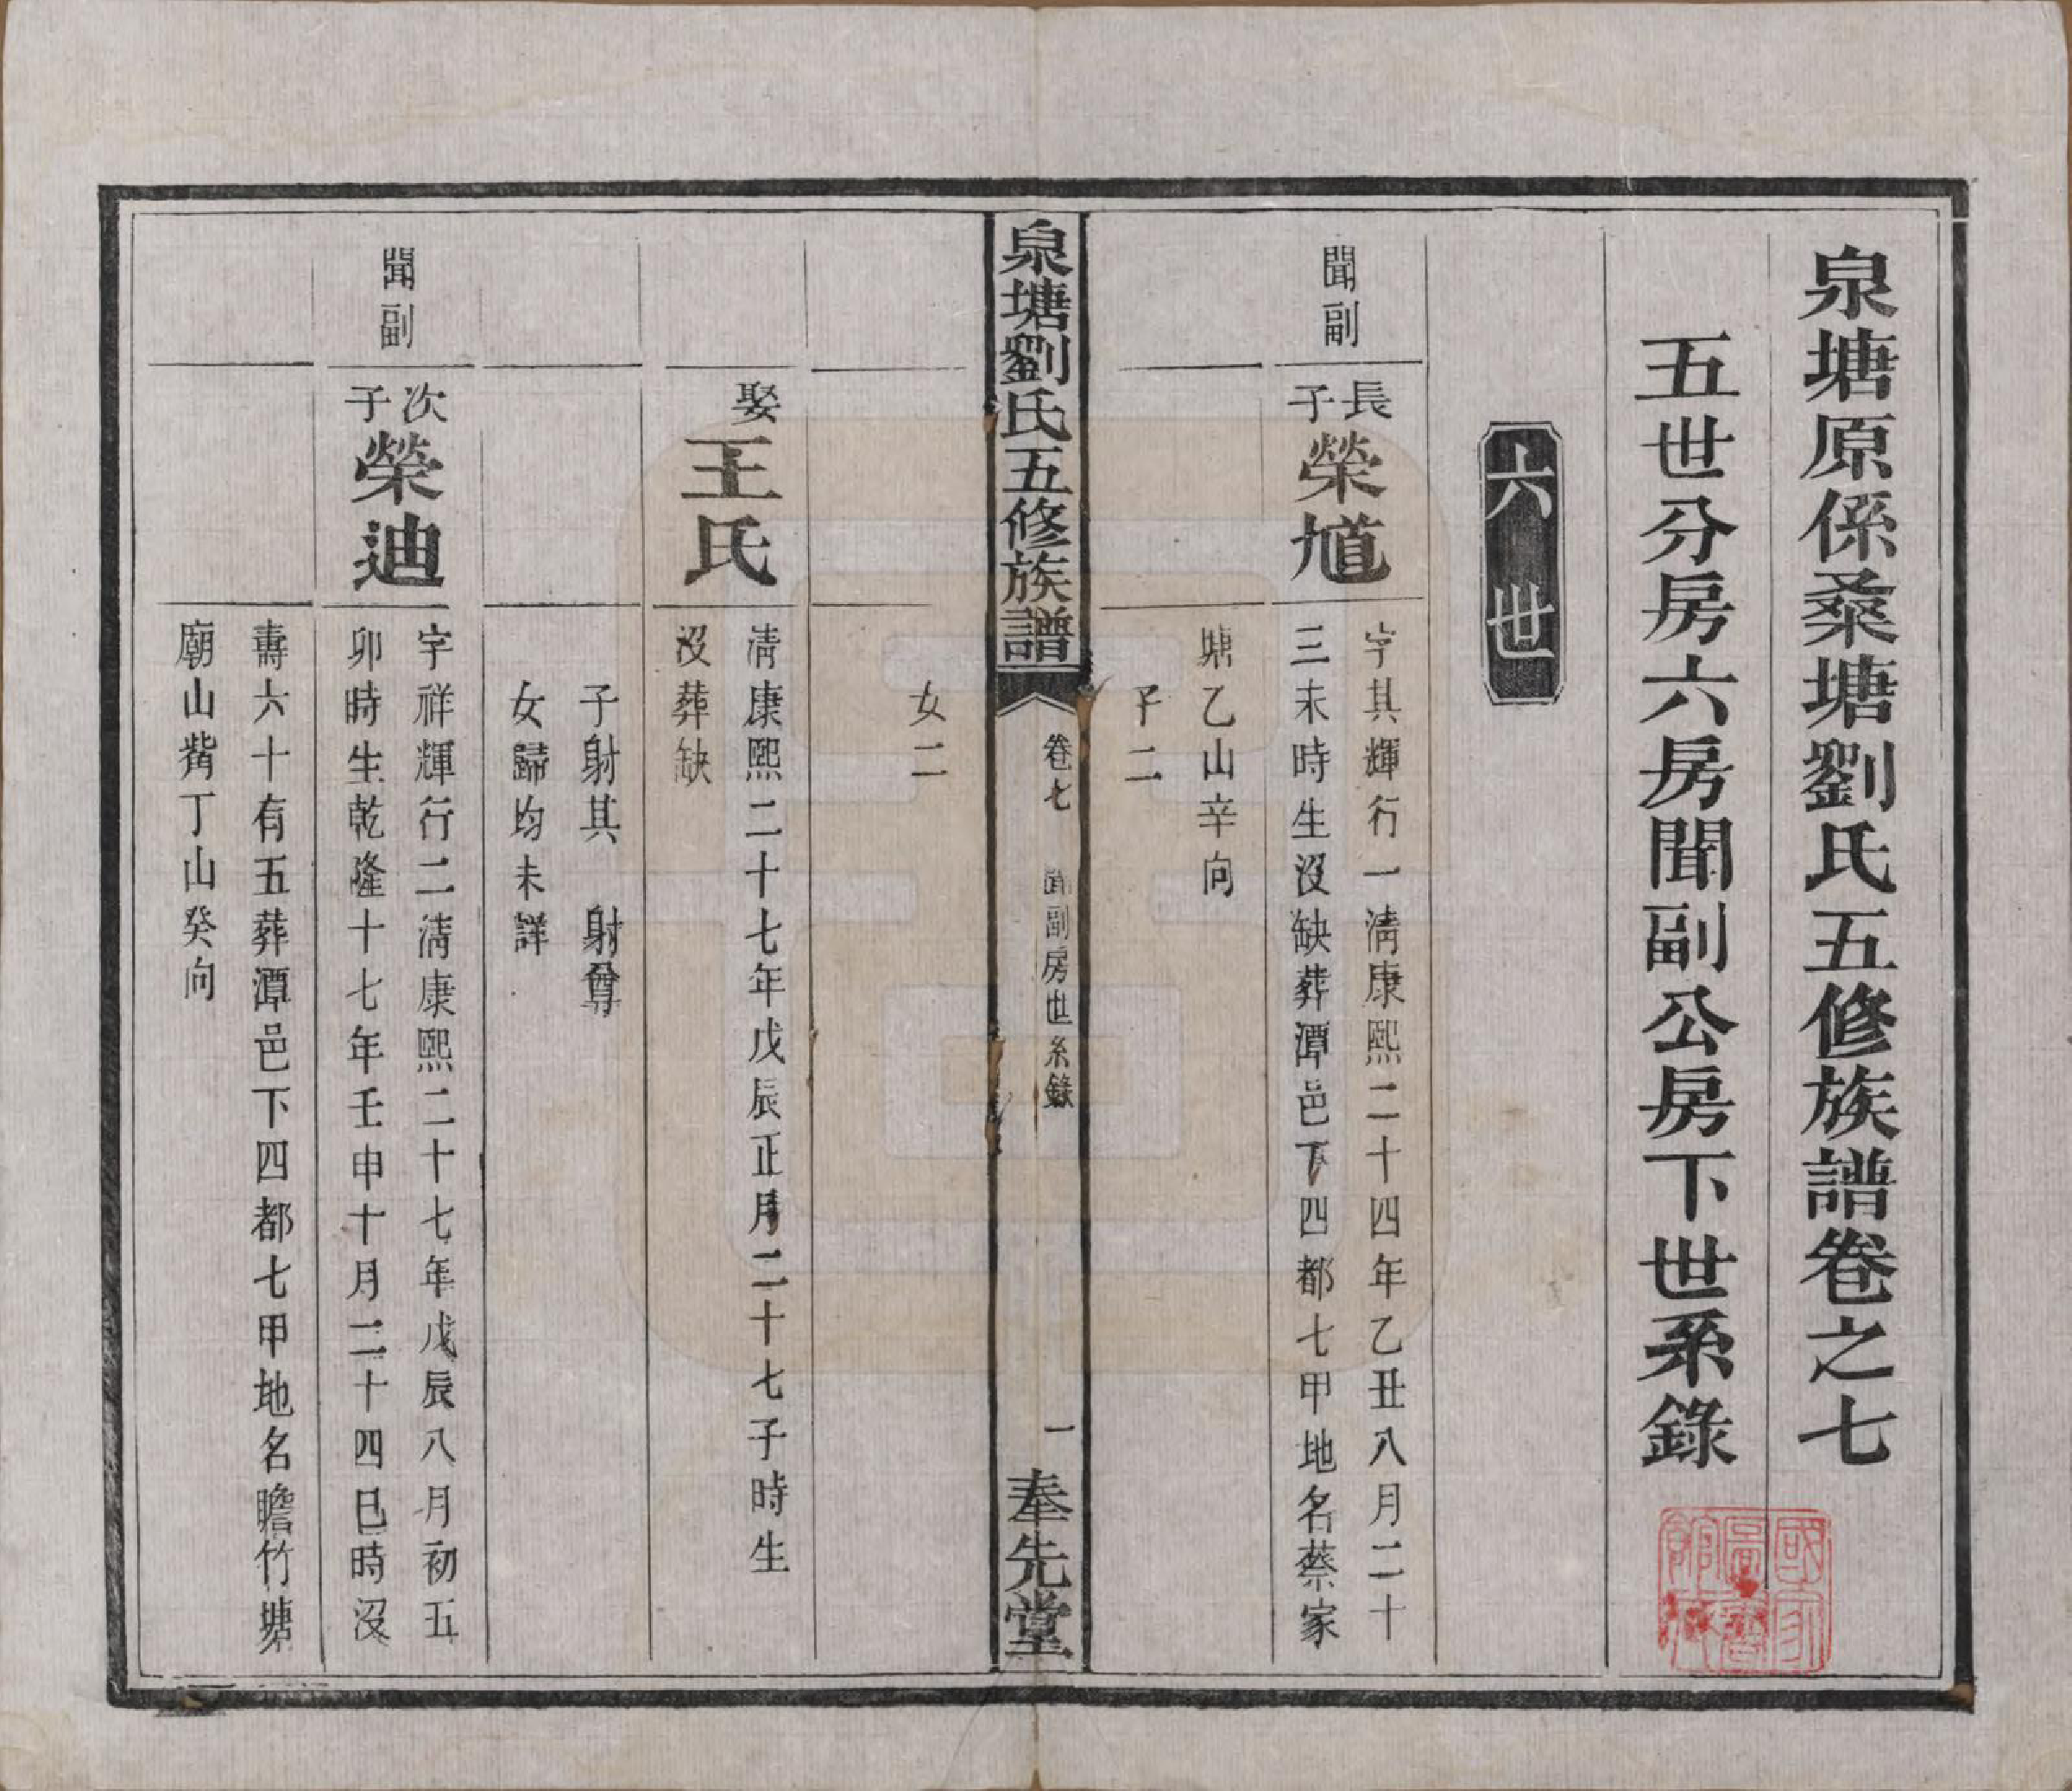 泉塘原係桑塘劉氏五修族譜卷之七
五世分房六房聞副公房下世系錄
六世
聞副
長子
榮馗
字其輝行一清康熙二十四年乙丑八月二十
三未時生沒缺葬潭邑下四都七甲地名蔡家
塘乙山辛向
子二
泉塘劉氏五修族譜
卷七
聞副房世系錄
一
奉先堂
女二
娶
王氏
清康熙二十七年戊辰正月二十七子時生
沒葬缺
子射其 射尊
女歸均未詳
聞副
次子
榮迪
字祥輝行二清康熙二十七年戊辰八月初五
卯時生乾隆十七年壬申十月二十四巳時沒
壽六十有五葬潭邑下四都七甲地名瞻竹塘
廟山觜丁山癸向